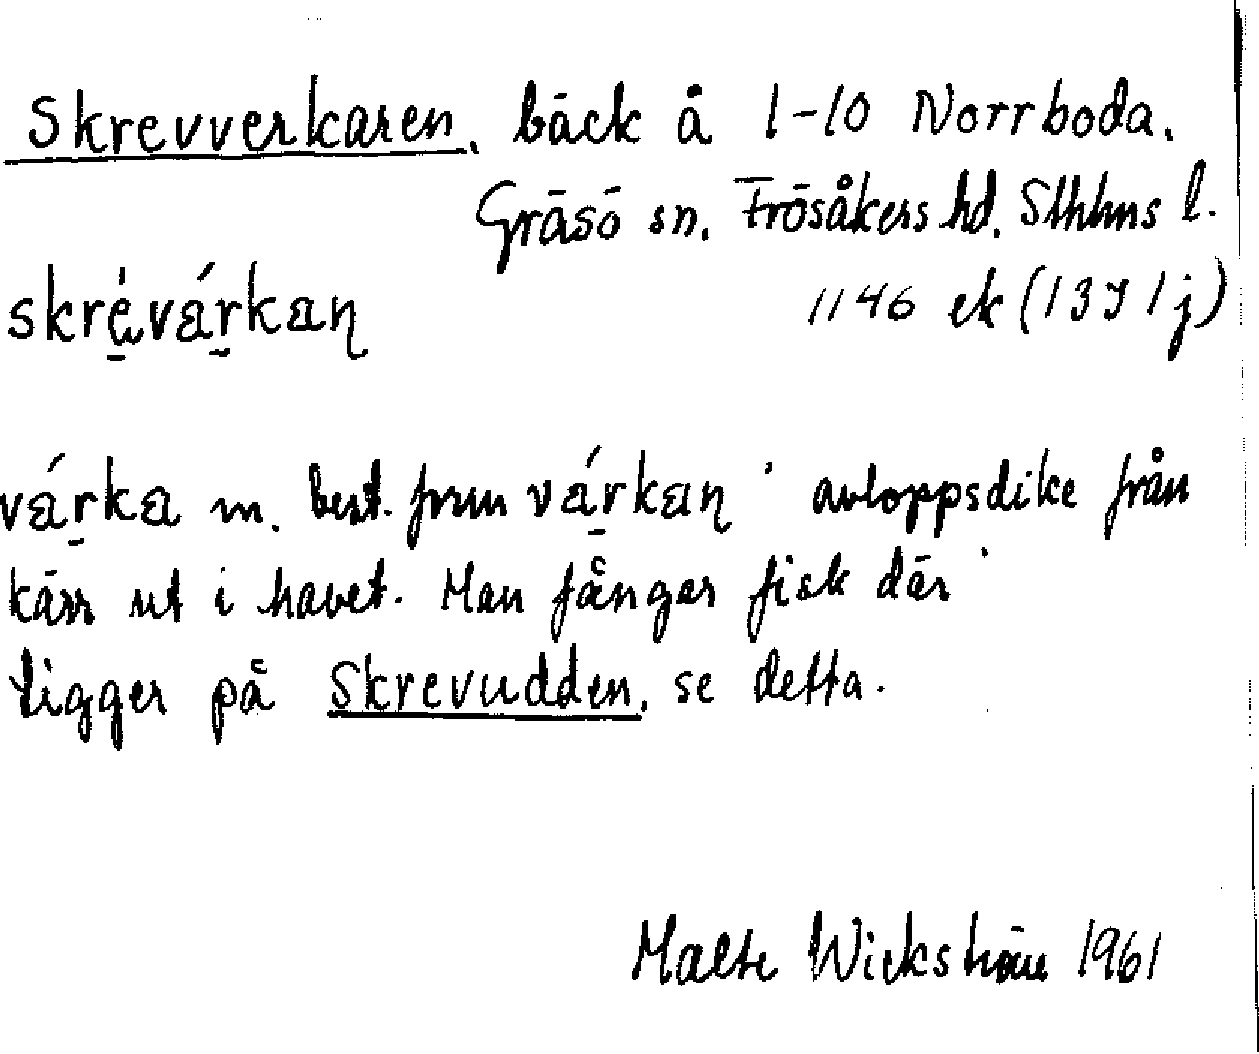 Skrevverkaren, bäck å 1-10 Norrboda.
Gräsö sn. Frösåkers hd. Sthlms l.
skrèvárkaɳ 1146 ek (13J 1j)
várka m. best. form várkaɳ ' avloppsdike från
kärr ut i havet. Man fångar fisk där '
ligger på Skrevudden, se detta.
Malte Wickström 1961